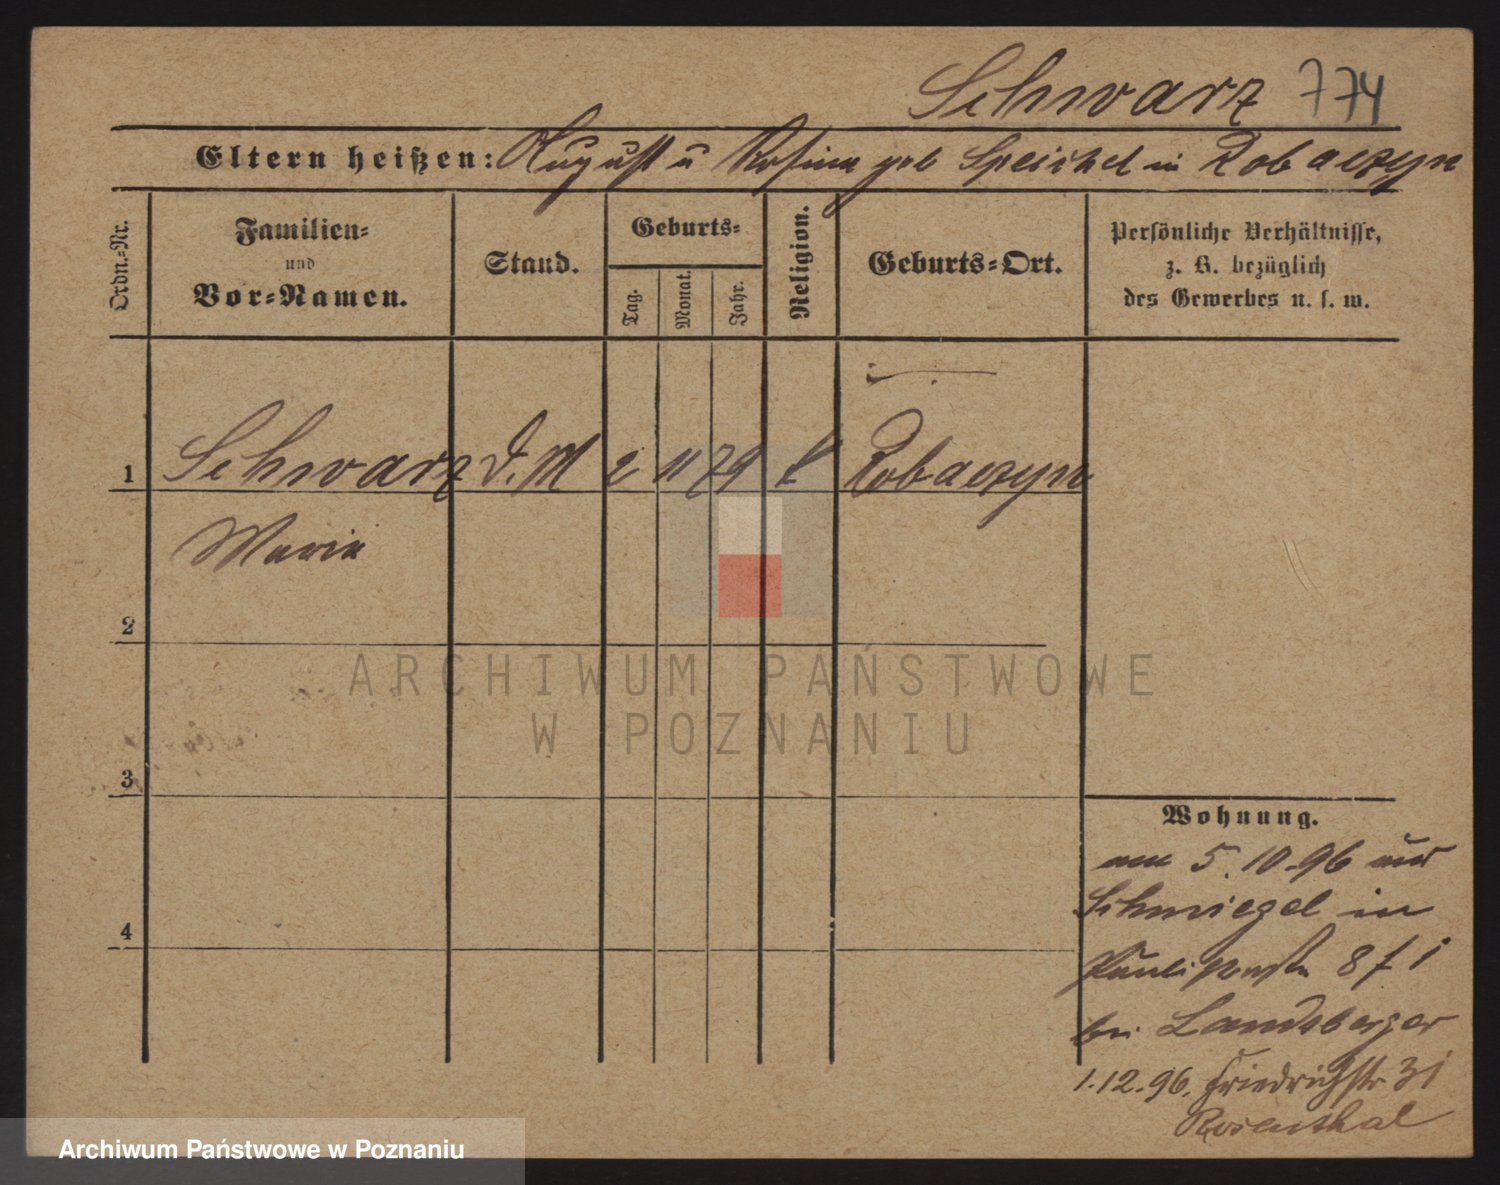 Schwarz 774
Eltern heißen: August u Rosina geb Speichel in Robaczyn
Ordn.-Nr.
Familien-
und
Vor-Namen.
Stand.
Geburts-
Tag.
Monat.
Jahr.
Religion.
Geburts-Ort.
Persönliche Verhältnisse,
z. B. bezüglich
des Gewerbes u. s. w.
1 Schwarz d. M 2 11 79 k Robaczyn
Maria
2
3
4
Wohnung.
am 5.10.96 aus
Schmiegel in
8 I
bei Landsberger
1.12.96. Friedrichstr 31
Rosenthal
ARCHIWUM PAŃSTWOWE
W POZNANIU
Archiwum Państwowe w Poznaniu